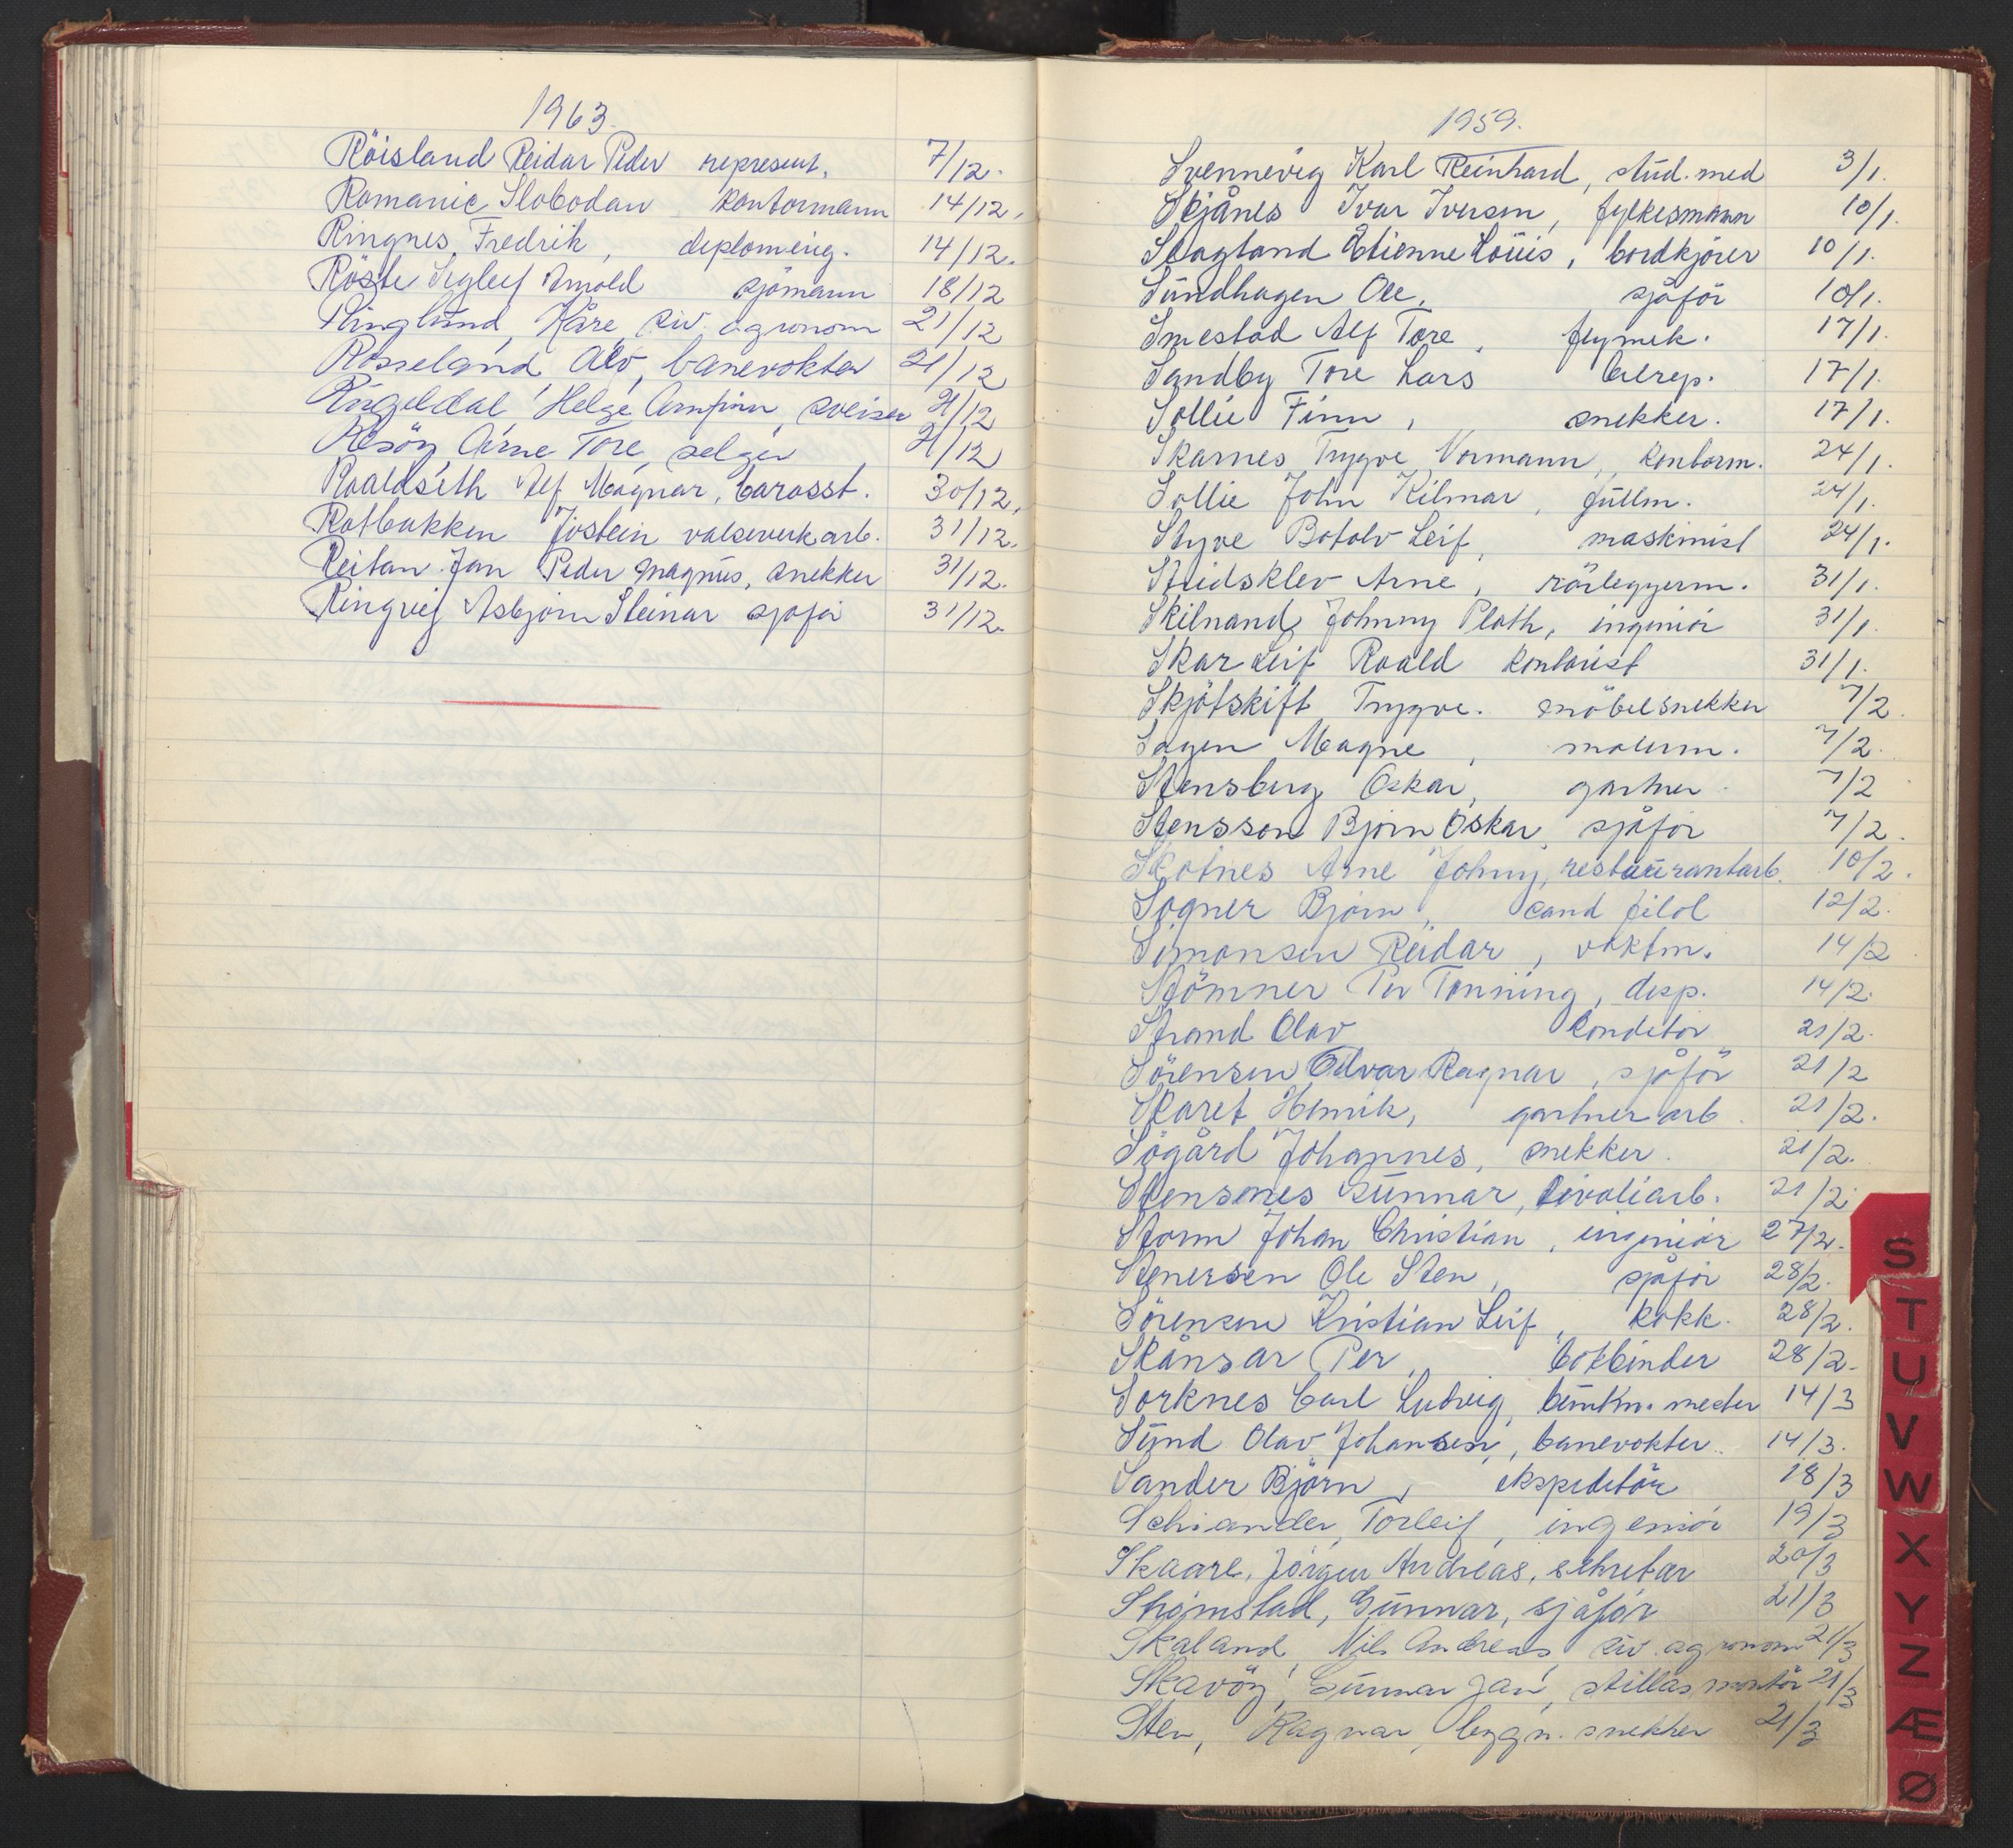 1963.
Röisland Reidar Peder represent. 7/12.
Romanic Slobodan kontormann 14/12.
Ringnes, Fredrik, diploming. 14/12.
Röste Sigleif Arnold sjömann 18/12
Ringlund, Kåre, siv. agronom 21/12
Rosseland, Alv, banevokter 21/12
Ringeldal, Helge Arnfinn, sveiser 21/12
Resöy, Arne Tore, selger 21/12
Roaldseth Alf Magnar, barasst. 30/12.
Rotbakken Jostein valseverkarb. 31/12.
Reitan Jan Peder Magnus, snekker 31/12.
Ringvej Asbjörn Steinar sjåfør 31/12.
1959.
Svennevig Karl Reinhard, stud. med 3/1.
Skjånes Ivar Iversen, fylkesmann 10/1.
Skagland Etienne Louis, bordkjörer 10/1.
Sundhagen Ole, sjåför 10/1.
Smestad Alf Tore, flymek. 17/1.
Sandby Tore Lars bilrep. 17/1.
Sollie Finn, snekker. 17/1.
Skarnes Trygve Normann, kontorm. 24/1.
Sollie John Hilmar, fullm. 24/1.
Styve Botolv Leif, maskinist 24/1.
Stridsklev Arne, rörleggerm. 31/1.
Skilnand Johnny Plath, ingeniör 31/1.
Skar Leif Roald kontorist 31/1.
Skjötskift Trygve. möbelsnekker 7/2.
Sagen Magne, malerm. 7/2.
Stensberg Oskar, gartner 7/2
Stensson Björn Oskar, sjåför 7/2.
Skotnes Arne Johnny, restaurantarb. 10/2.
Sogner Björn, cand filol 12/2.
Simonsen Reidar, vaktm. 14/2
Stömner Per Tonning, disp. 14/2.
Strand Olav konditor 21/2.
Sörensen Odvar Ragnar, sjåför 21/2
Skaret Henrik, gartnerarb. 21/2.
Sögård Johannes, snekker. 21/2.
Stensmes Gunnar, tivoliarb. 21/2.
Storm Johan Christian, ingeniör 27/2.
Stenersen Ole Sten, sjåför 28/2.
Sörensen Kristian Leif, kokk. 28/2.
Skånsar Per, bokbinder 28/2.
Sorknes Carl Ludvig, bankn. mester 14/3
Sund Olav Johansen, banevokter. 14/3.
Sander Björn, ekspeditör 18/3
Schiander, Torleif, ingeniör 19/3
Skaare, Jörgen Andreas, sekretær 20/3
Strömstad, Gunnar, sjåför 21/3
Skaland, Nils Andreas, siv. agronom 21/3
Skavöy, Gunnar Jan, stillasmontör 21/3
Sten, Ragnar, bygn. snekker 21/3
S
T
U
V
W
X
Y
Z
Æ
Ø